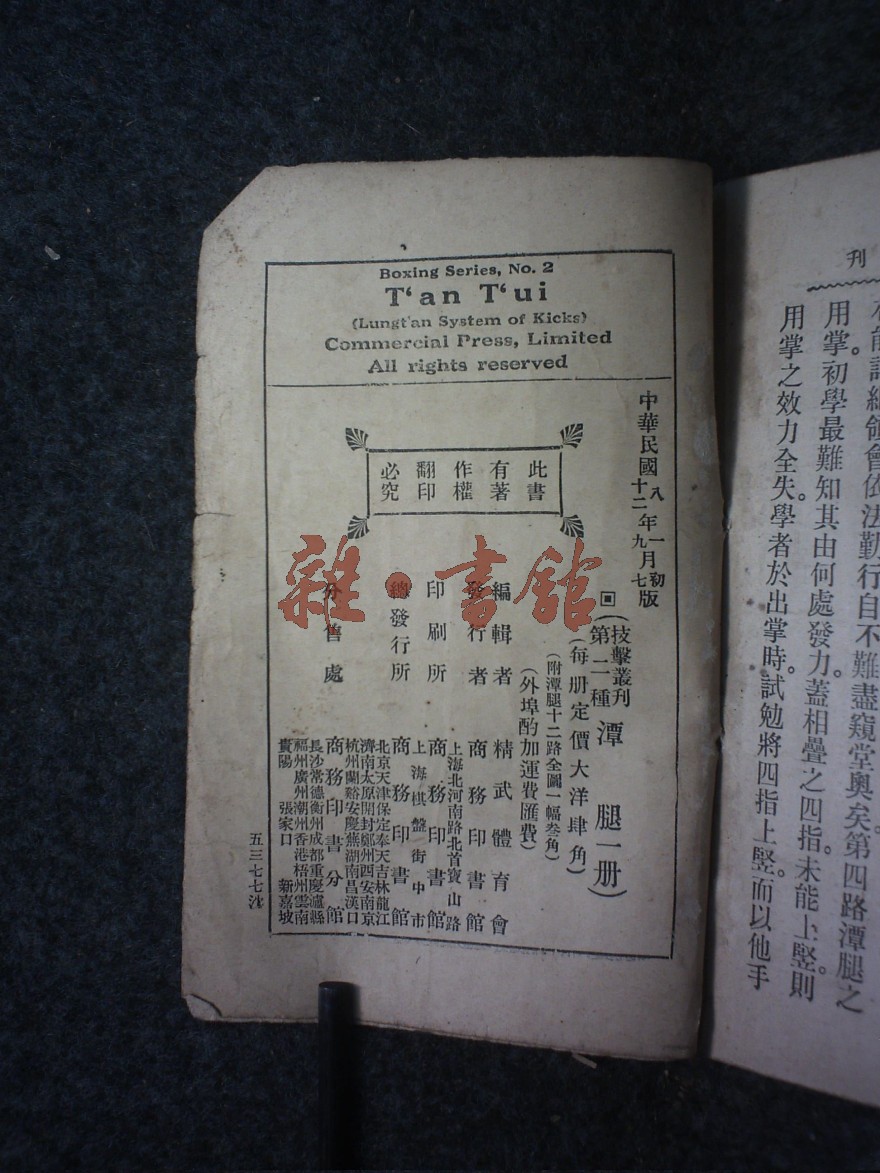 Boxing Series, No. 2
T‘an T‘ui
(Lungt‘an System of Kicks)
Commercial Press, Limited
All rights reserved
中華民國八年一月初版
十二年九月七版
此書
有著
作權
翻印
必究
(技擊叢刊第二種)潭腿一册)
(每册定價大洋肆角)
(附潭腿十二路全圖一幅叁角)
(外埠酌加運費匯費)
編輯者 精武體育會
發行者 商務印書館
印刷所 上海北河南路北首寶山路
商務印書館
總發行所 上海棋盤街中市
商務印書館
分售處 北京天津保定奉天吉林龍江
濟南太原開封鄭州西安南京
杭州蘭谿安慶蕪湖南昌漢口
商務印書分館
長沙常德衡州成都重慶瀘縣
福州廣州潮州香港梧州雲南
貴陽 張家口 新嘉坡
五三七七沈
雜·書館
刊
能詳細領會依法勤行自不難盡窺堂奧矣。第四路潭腿之
用掌。初學最難知其由何處發力。蓋相疊之四指。未能上竪。則
用掌之效力全失。學者於出掌時。試勉將四指上竪。而以他手